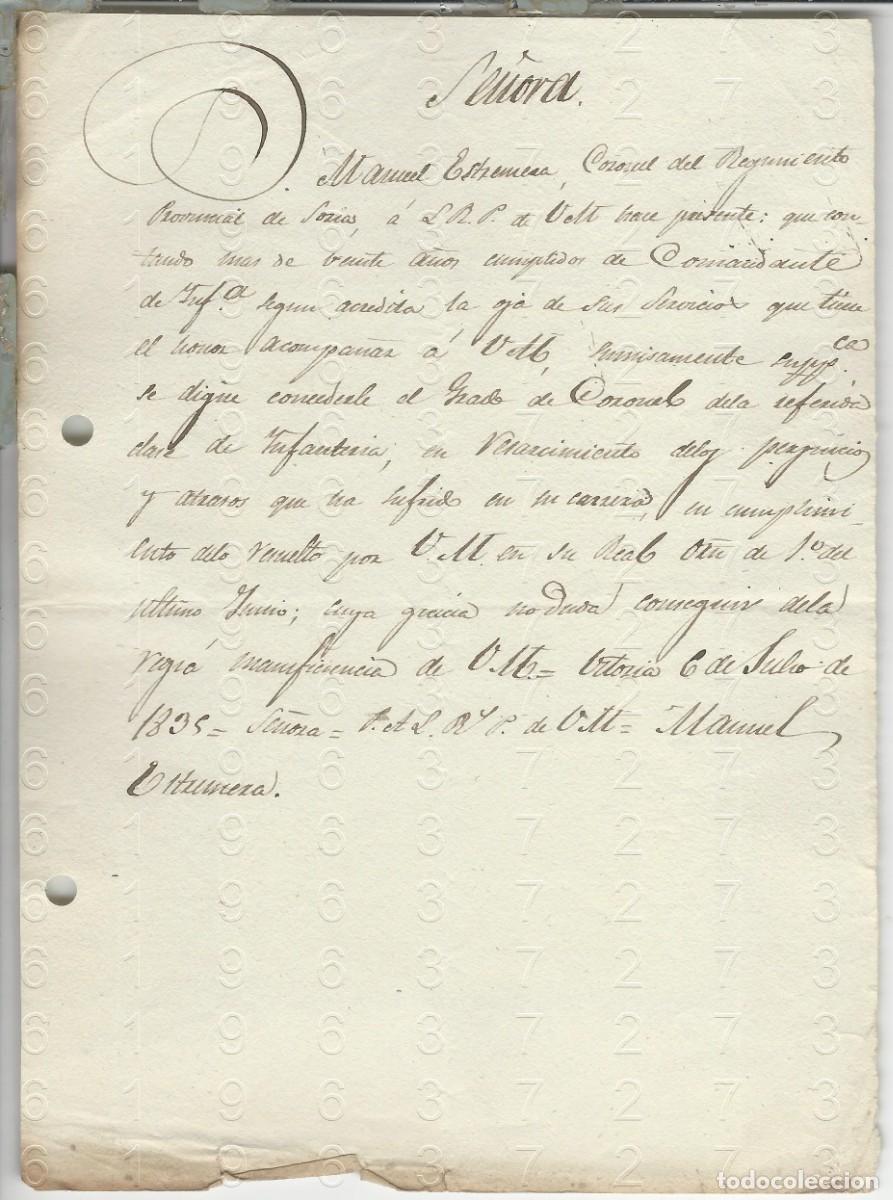 Señora.
Manuel Estremera, Coronel del Regimiento
Provincial de Soria, á L.R.P. de V.M. hace presente: que con-
tando mas de veinte años cumplidos de Comandante
de Ynf.ª segun acredita la oja de sus Servicios que tiene
el honor acompañar á V.M, sumisamente supp.ca
se digne concederle el Grado de Coronel dela referida
clase de Ynfanteria, en resarcimiento delos perjuicios
y atrasos que ha sufrido en su carrera, en cumplimi-
ento delo resuelto por V.M. en su Real Orn de 1.º del
ultimo Junio; cuya gracia no duda conseguir dela
regia munificencia de V.M.= Vitoria 6 de Julio de
1835= Señora= A L. R.s P. de V.M= Manuel
Estremera.
6 1 9 6 3 7 2 7 3
todocoleccion